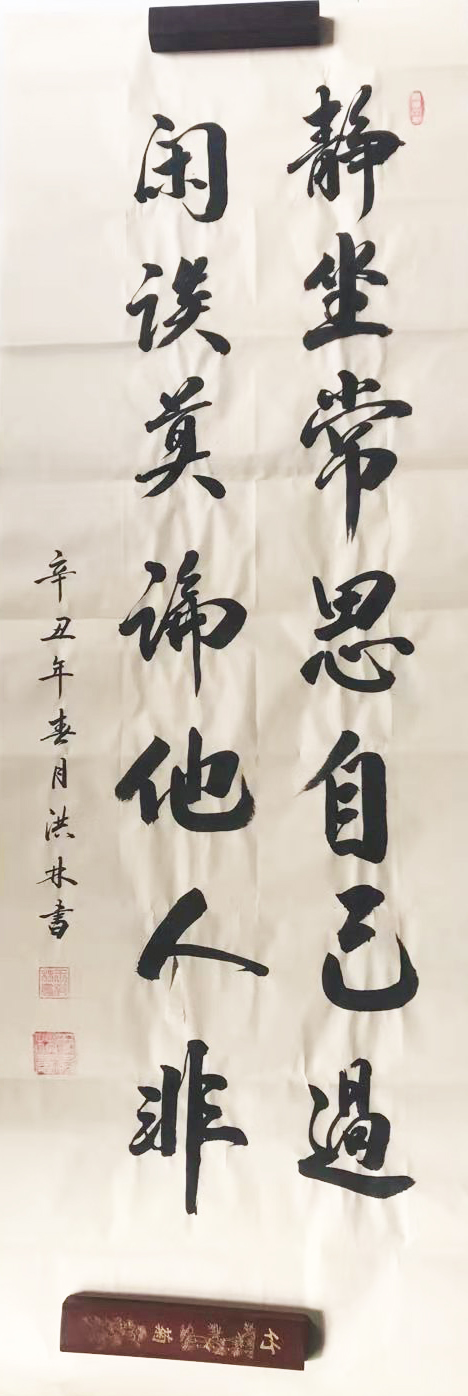 静坐常思自己過
闲谈莫論他人非
辛丑年春月洪林书